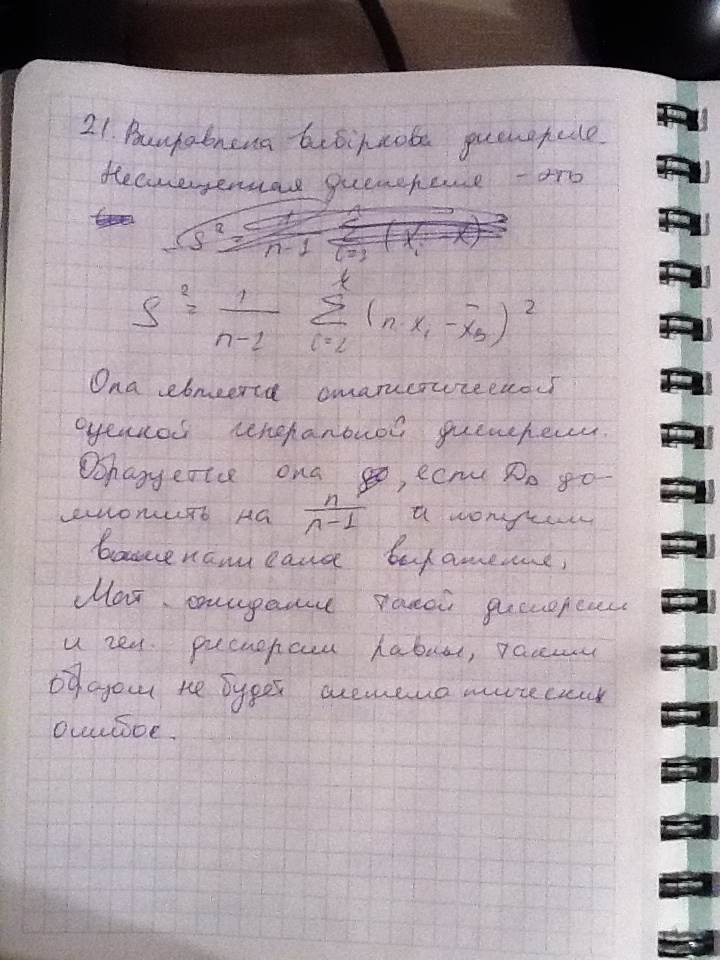 21. Виправлена вибіркова дисперсія.
Несмещенная дисперсия - это
S² = 1/(n-1) Σ (n·xᵢ - x̄в)²
Она является статистической
оценкой генеральной дисперсии.
Образуется она, если Dв до-
множить на n/(n-1) и получим
выражение,
Мат. ожидание такой дисперсии
и ген. дисперсии равны, таким
образом не будет систематических
ошибок.